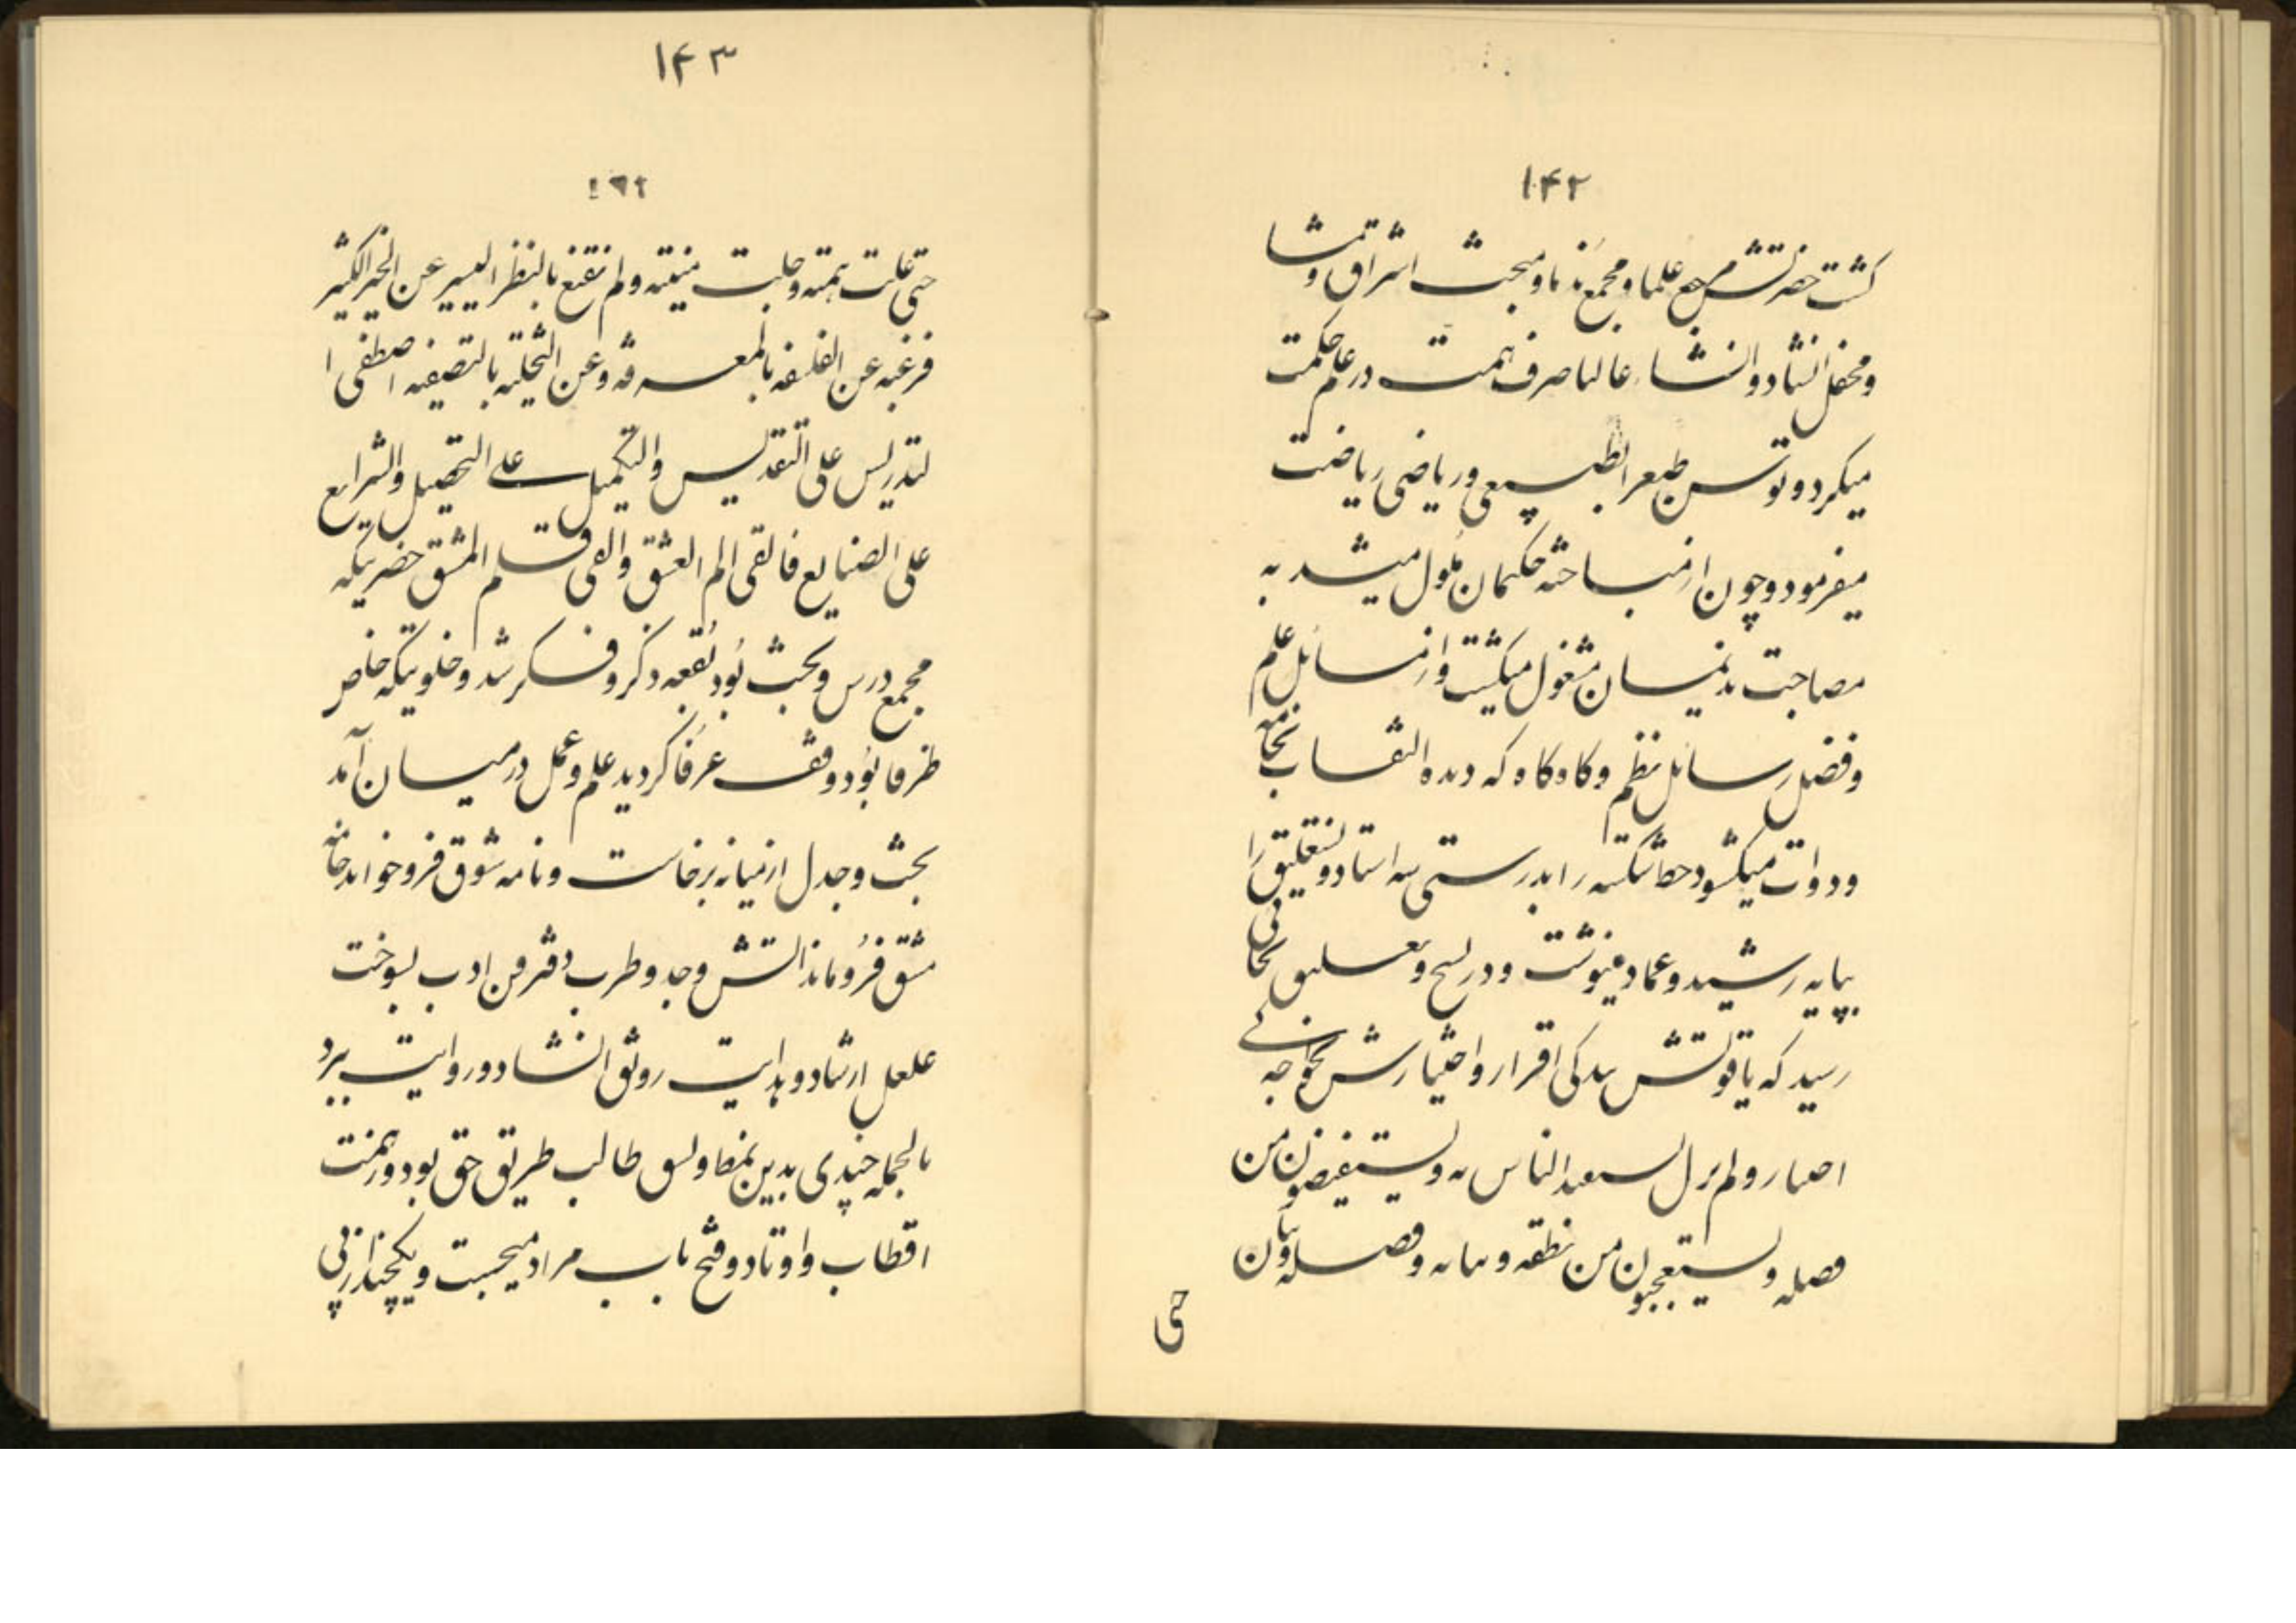 ۱۴۲
گشت حضرتش مرجع علما و مجمع ندما و مبحث اشراق و مشا
و محفل انشاد و انشاء غالبا صرف همت در علم حکمت
میکرد و توسن طبع را بطبیعی و ریاضی ریاضت
میفرمود و چون از مباحثه حکیمان ملول میشد به
مصاحبت ندیمان مشغول میگشت و از مسائل علم
و فضل رسائل نظم و گاه گاه که دیده القاب نجامه
و دوات میگشود خط شکسته را بدرستی سه استاد و نستعلیق را
بپایه رشید و عماد مینوشت و در نسخ و تعلیق بجائی
رسید که یاقوتش ببندگی اقرار و اختیارش بخواجه
اختیار و لم یزل یستعبد الناس به و یستفیضون من
فضله و یستعجبون من نطقه و بیانه و فصله و بیان
حتی
۱۴۳
حتی علت همته و جلبت منیته و لم نقنع بالنظر الیسیر عن الخیر الکثیر
فرغبه عن الفلسفه بالمعرفه و عن التحلیه بالتصفیه اصطفی ا
لتدریس علی التقدیس والتکمیل علی التحصیل والشرایع
علی الصنایع فالقی الم العشق والقی قلم المشق حضرتیکه
مجمع درس و بحث بود بقعه ذکر و فکر شد و خلوتیکه خاص
ظرفا بود وقف عرفا گردید علم و عمل در میان آمد
بحث و جدل از میانه برخاست و نامه شوق فرو خواند خامه
مشق فرو ماند اتش وجد و طرب دفتر فن ادب بسوخت
علعل ارشاد و هدایت رونق انشاد و روایت ببرد
بالجمله چندی بدین نمط و نسق طالب طریق حق بود و از همت
اقطاب و اوتاد و فتح باب مراد میجست و یکچند از پی